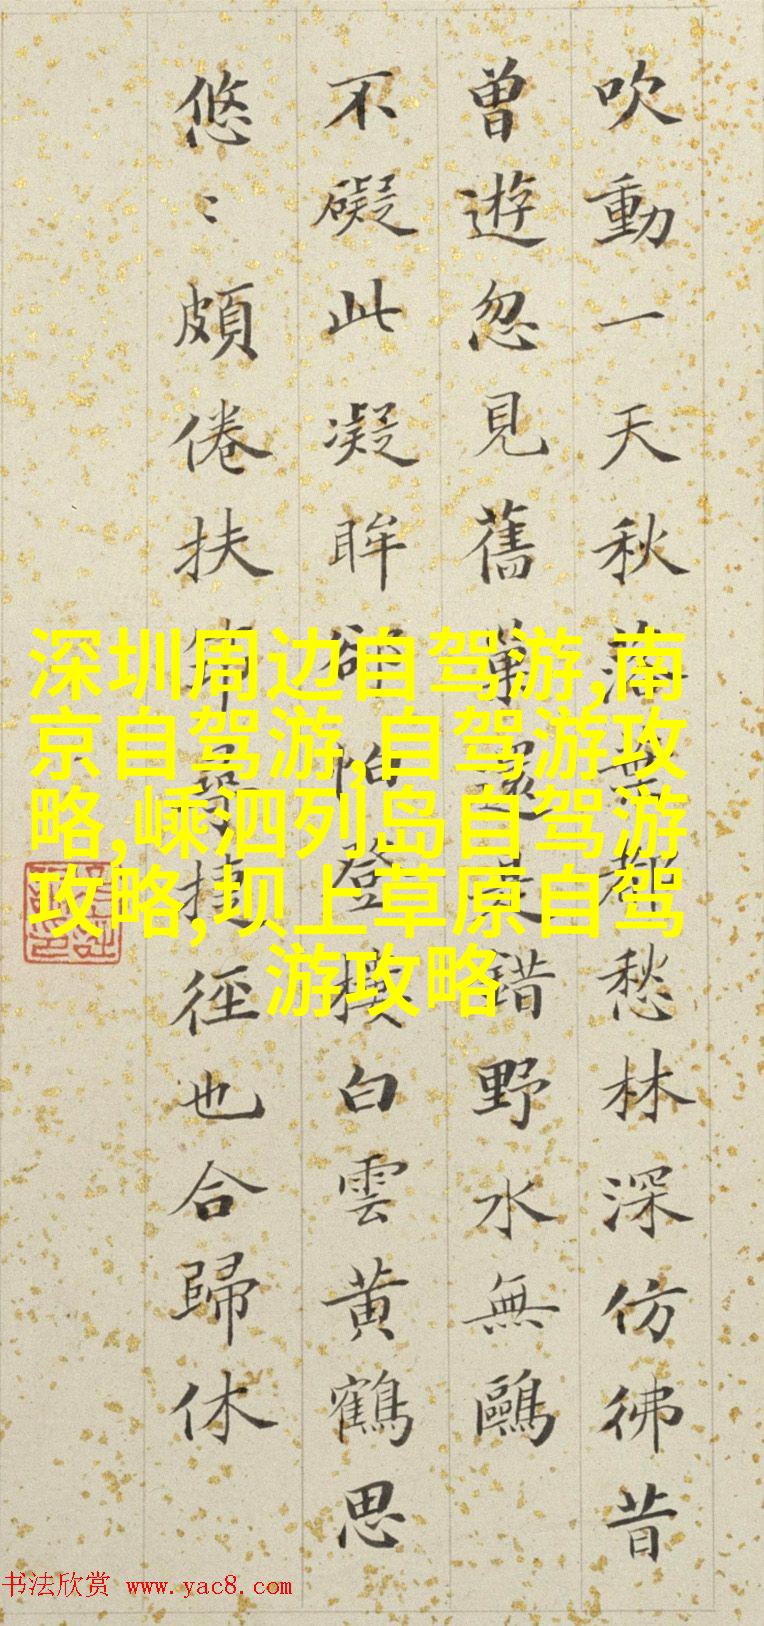 吹動一天秋落葉都愁林深仿彿昔
曾遊忽見舊還是錯野水無鷗
不礙此凝眸卻怕登樓白雲黃鶴思
悠〻頗倦扶筇尋捷徑也合歸休
深圳周边自驾游,南
京自驾游,自驾游攻
略,嵊泗列岛自驾游
攻略,坝上草原自驾
游攻略
书法欣赏 www.yac8.com